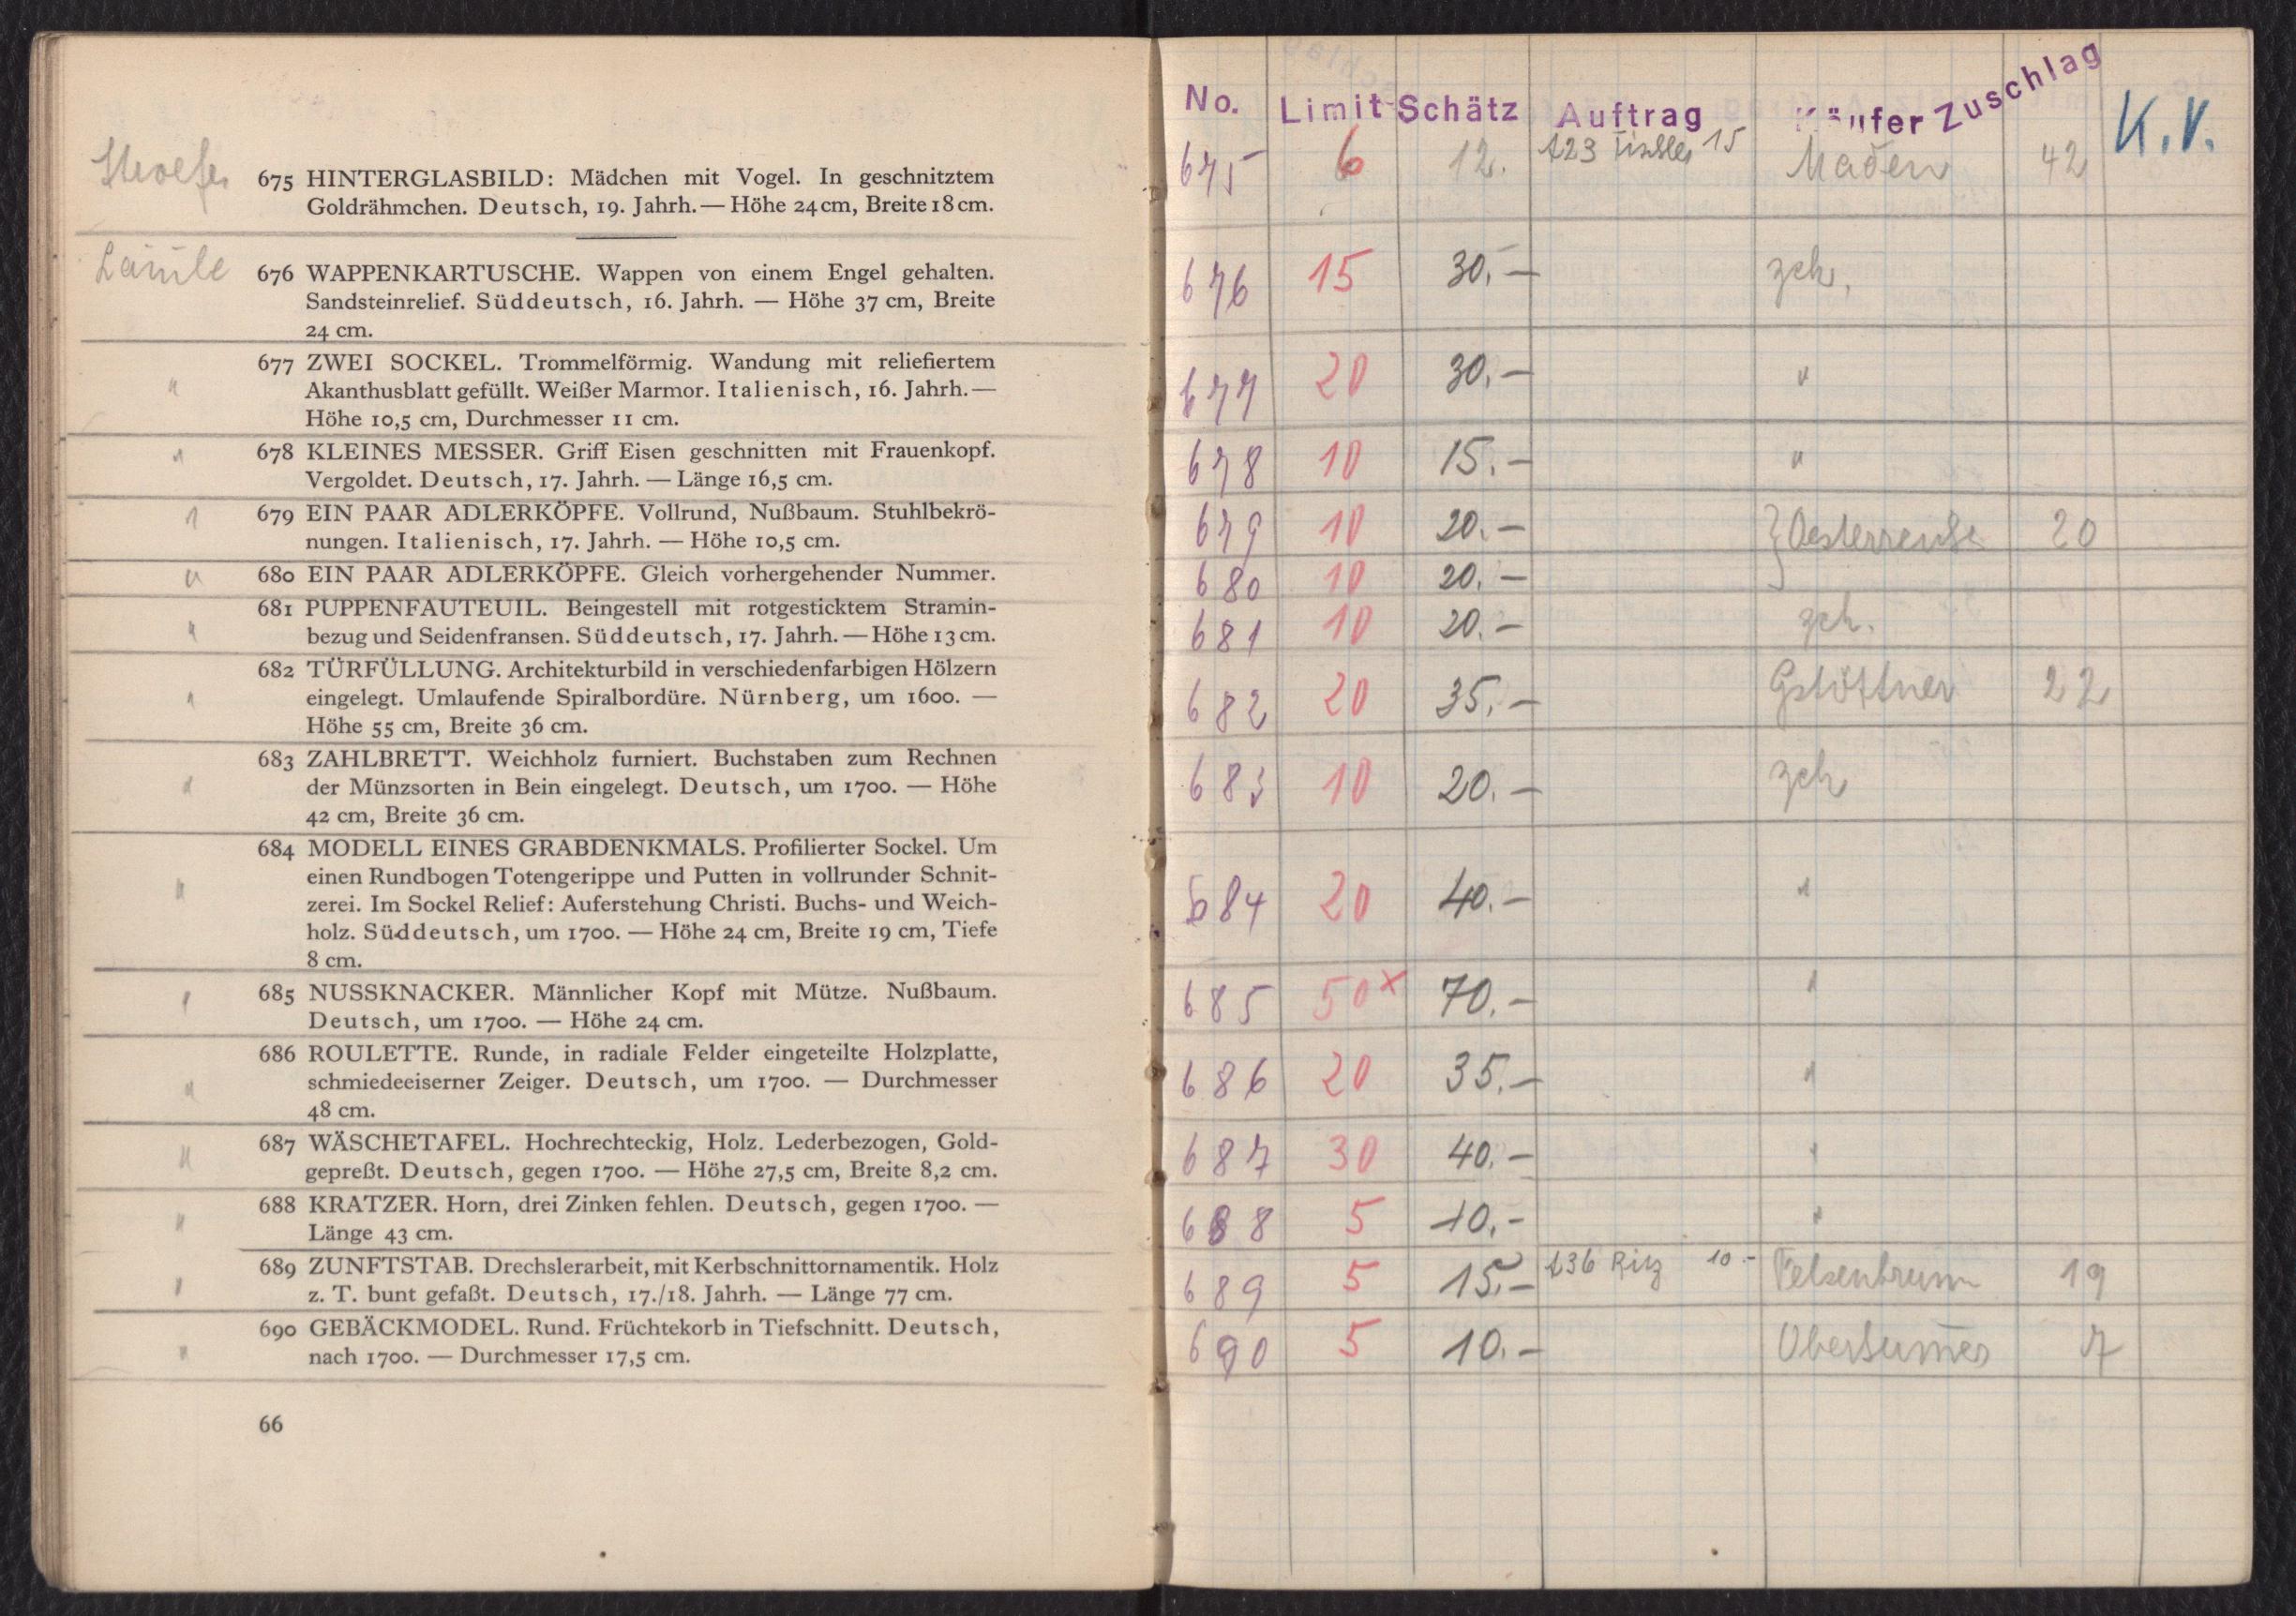 675 HINTERGLASBILD: Mädchen mit Vogel. In geschnitztem
Goldrähmchen. Deutsch, 19. Jahrh. — Höhe 24 cm, Breite 18 cm.
676 WAPPENKARTUSCHE. Wappen von einem Engel gehalten.
Sandsteinrelief. Süddeutsch, 16. Jahrh. — Höhe 37 cm, Breite
24 cm.
677 ZWEI SOCKEL. Trommelförmig. Wandung mit reliefiertem
" Akanthusblatt gefüllt. Weißer Marmor. Italienisch, 16. Jahrh. —
Höhe 10,5 cm, Durchmesser 11 cm.
" 678 KLEINES MESSER. Griff Eisen geschnitten mit Frauenkopf.
Vergoldet. Deutsch, 17. Jahrh. — Länge 16,5 cm.
" 679 EIN PAAR ADLERKÖPFE. Vollrund, Nußbaum. Stuhlbekrö-
nungen. Italienisch, 17. Jahrh. — Höhe 10,5 cm.
" 680 EIN PAAR ADLERKÖPFE. Gleich vorhergehender Nummer.
681 PUPPENFAUTEUIL. Beingestell mit rotgesticktem Stramin-
" bezug und Seidenfransen. Süddeutsch, 17. Jahrh. — Höhe 13 cm.
682 TÜRFÜLLUNG. Architekturbild in verschiedenfarbigen Hölzern
" eingelegt. Umlaufende Spiralbordüre. Nürnberg, um 1600. —
Höhe 55 cm, Breite 36 cm.
683 ZAHLBRETT. Weichholz furniert. Buchstaben zum Rechnen
" der Münzsorten in Bein eingelegt. Deutsch, um 1700. — Höhe
42 cm, Breite 36 cm.
684 MODELL EINES GRABDENKMALS. Profilierter Sockel. Um
" einen Rundbogen Totengerippe und Putten in vollrunder Schnit-
zerei. Im Sockel Relief: Auferstehung Christi. Buchs- und Weich-
holz. Süddeutsch, um 1700. — Höhe 24 cm, Breite 19 cm, Tiefe
8 cm.
" 685 NUSSKNACKER. Männlicher Kopf mit Mütze. Nußbaum.
Deutsch, um 1700. — Höhe 24 cm.
686 ROULETTE. Runde, in radiale Felder eingeteilte Holzplatte,
" schmiedeeiserner Zeiger. Deutsch, um 1700. — Durchmesser
48 cm.
" 687 WÄSCHETAFEL. Hochrechteckig, Holz. Lederbezogen, Gold-
gepreßt. Deutsch, gegen 1700. — Höhe 27,5 cm, Breite 8,2 cm.
" 688 KRATZER. Horn, drei Zinken fehlen. Deutsch, gegen 1700. —
Länge 43 cm.
" 689 ZUNFTSTAB. Drechslerarbeit, mit Kerbschnittornamentik. Holz
z. T. bunt gefaßt. Deutsch, 17./18. Jahrh. — Länge 77 cm.
" 690 GEBÄCKMODEL. Rund. Früchtekorb in Tiefschnitt. Deutsch,
nach 1700. — Durchmesser 17,5 cm.
66
No. Limit Schätz Auftrag Käufer Zuschlag K.V.
675 6 12. 15 Maden 42
676 15 30.— zch.
677 20 30.— "
678 10 15.— "
679 10 20.— 20
680 10 20.—
681 10 20.— zch.
682 20 35.— Gstöttner 22
683 10 20.— zch
684 20 40.— "
685 50 x 70.— "
686 20 35.— "
687 30 40.— "
688 5 10.— "
689 5 15.— Ritz 10.— Felsenbrunn 19
690 5 10.— 7